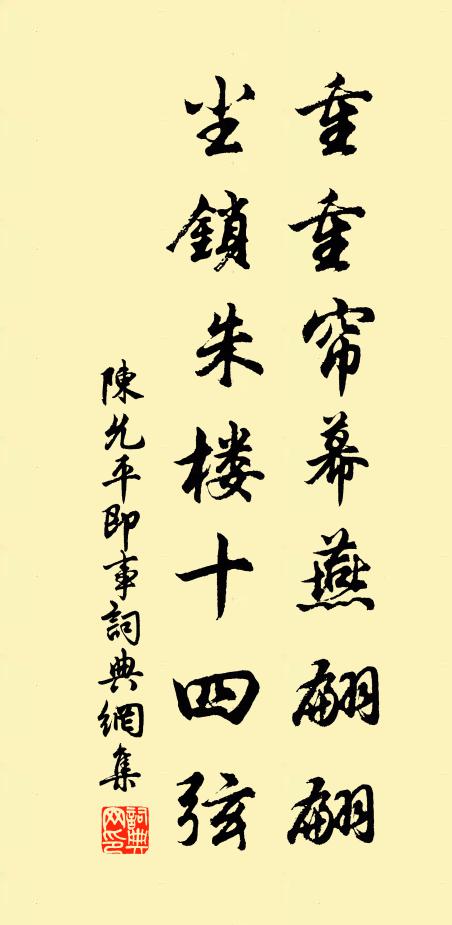 重重帘幕燕翩翩
尘鎖朱楼十四弦
陳允平即事詞典網集
詞典网印